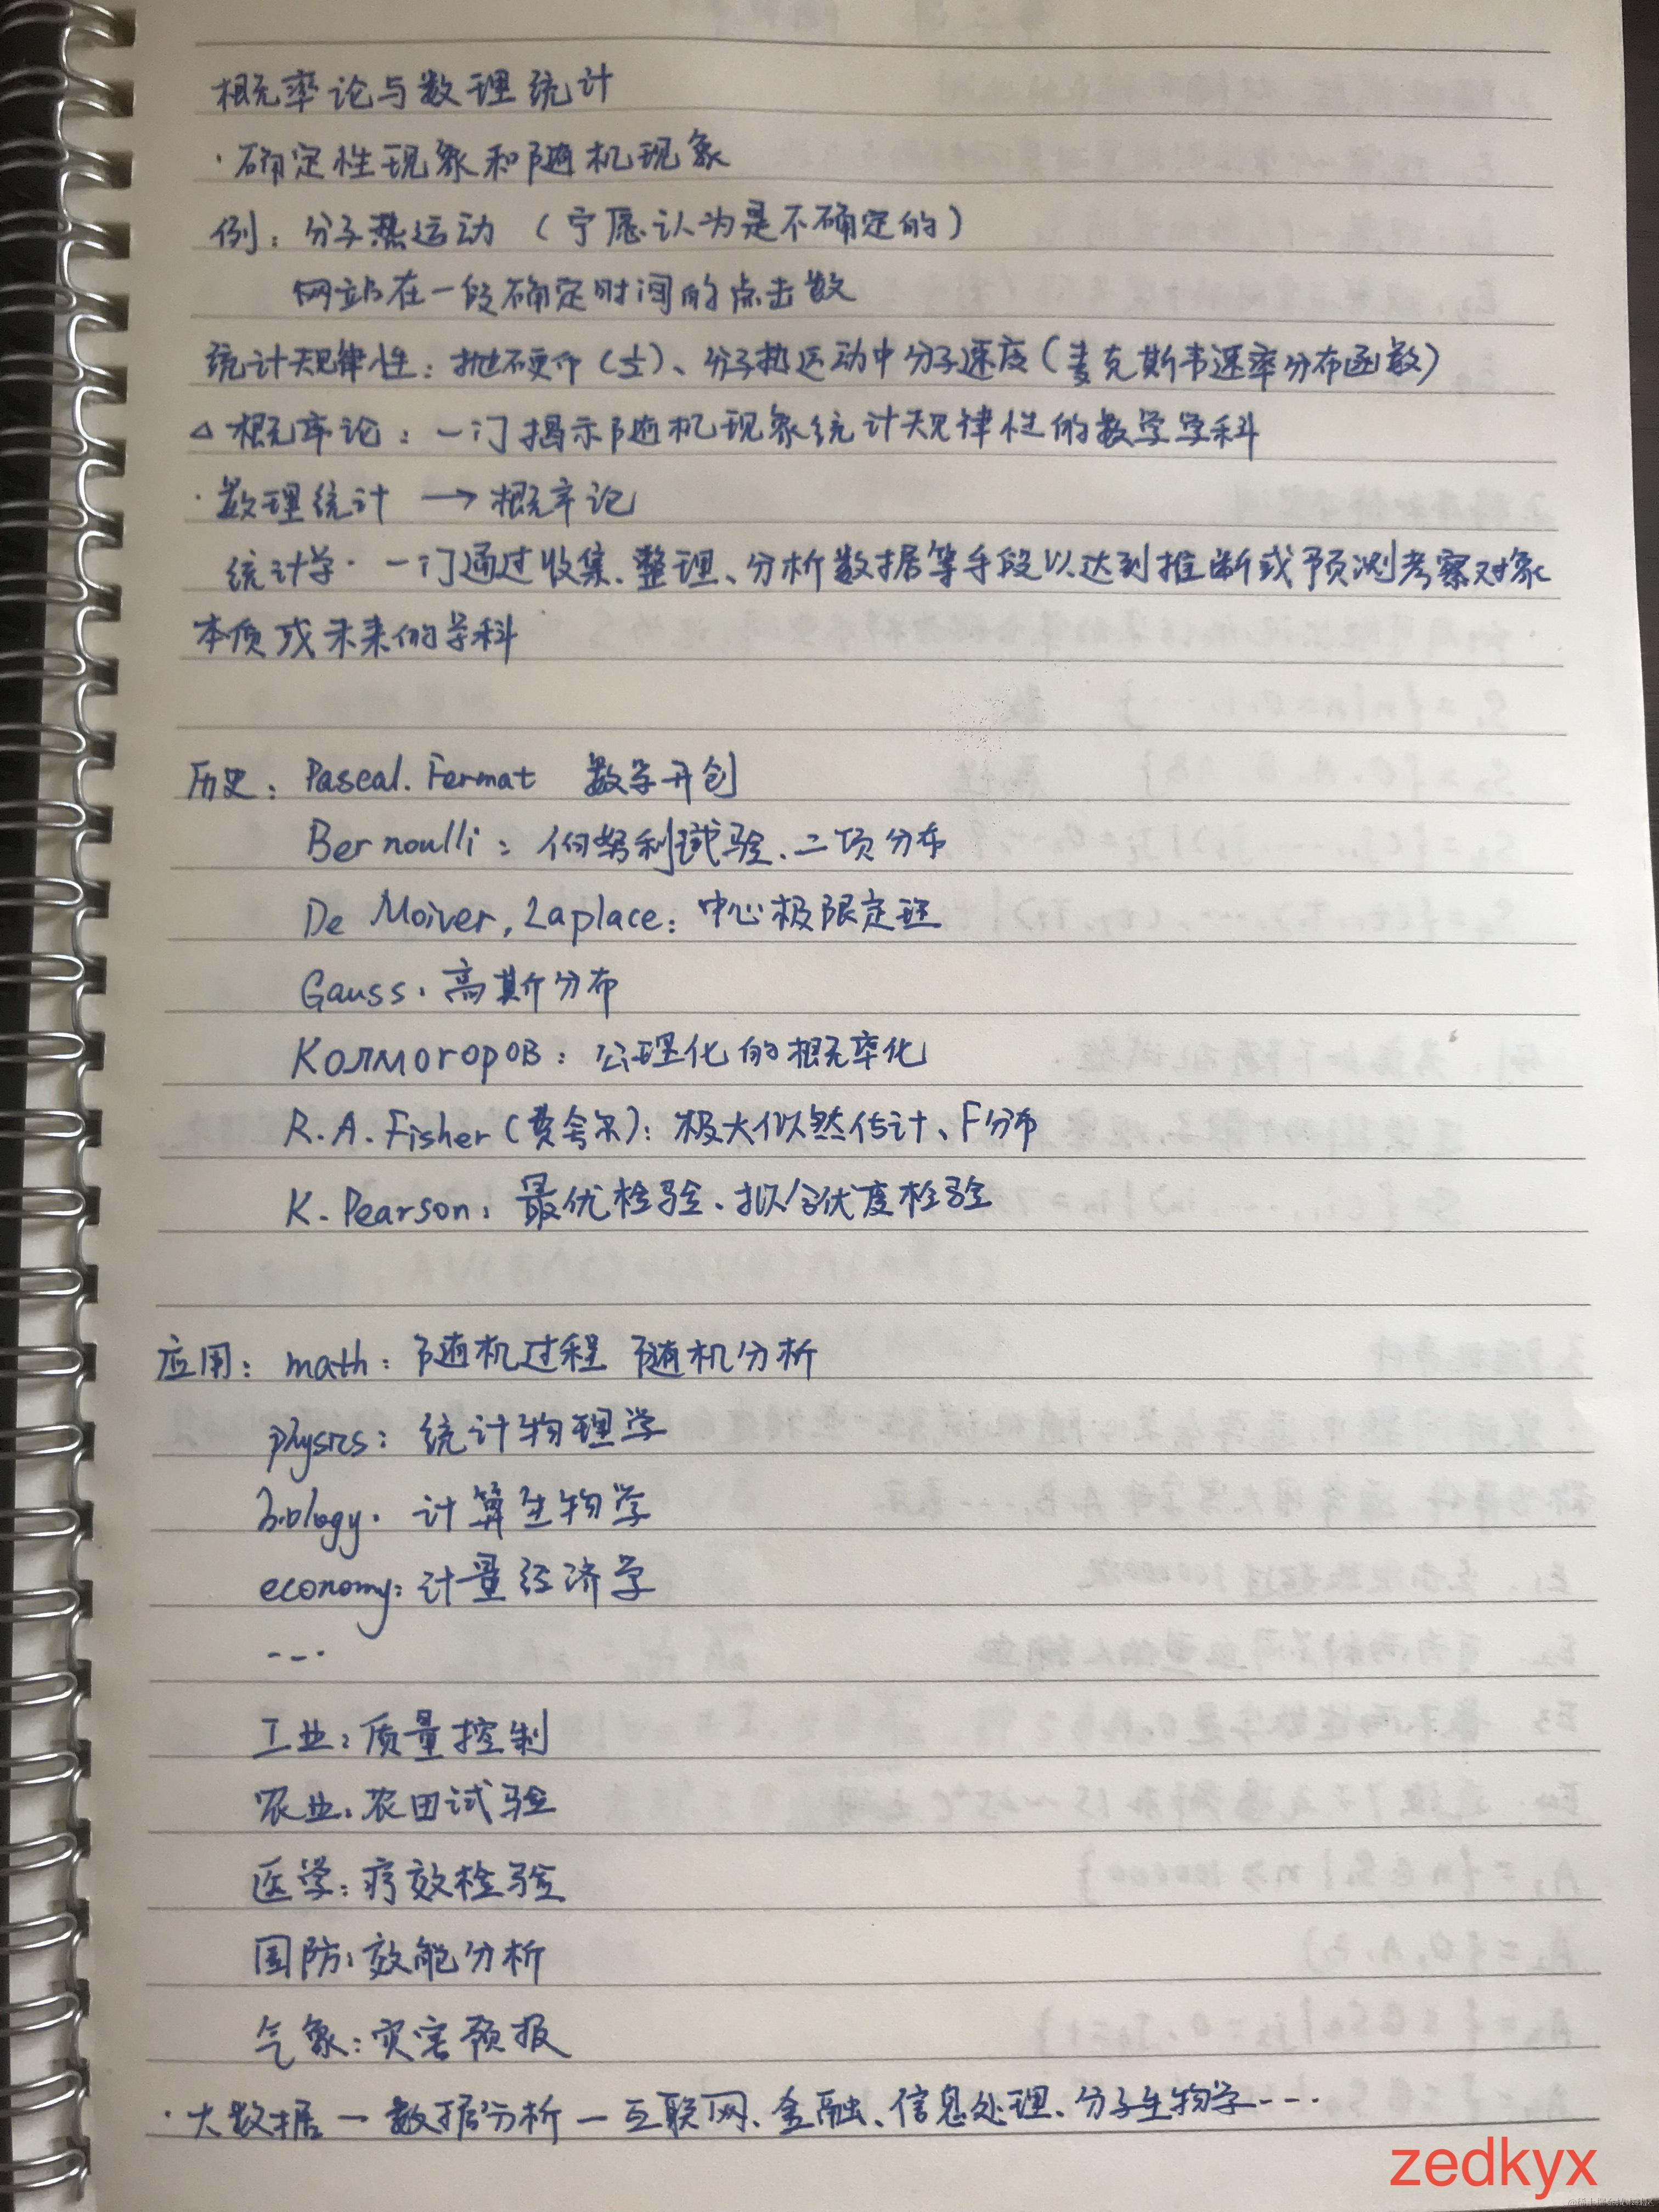 概率论与数理统计
·确定性现象和随机现象
例：分子热运动（宁愿认为是不确定的）
网站在一段确定时间的点击数
统计规律性：抛硬币（½）、分子热运动中分子速度（麦克斯韦速率分布函数）
△概率论：一门揭示随机现象统计规律性的数学学科
·数理统计 → 概率论
统计学·一门通过收集、整理、分析数据等手段以达到推断或预测考察对象
本质或未来的学科
历史：Pascal. Fermat 数学开创
Bernoulli：伯努利试验、二项分布
De Moiver, Laplace：中心极限定理
Gauss. 高斯分布
Колмогоров：公理化的概率化
R.A.Fisher（费舍尔）：极大似然估计、F分布
K. Pearson：最优检验、拟合优度检验
应用：math：随机过程 随机分析
physics：统计物理学
biology. 计算生物学
economy：计量经济学
...
工业：质量控制
农业：农田试验
医学：疗效检验
国防：效能分析
气象：灾害预报
·大数据—数据分析—互联网、金融、信息处理、分子生物学...
zedkyx